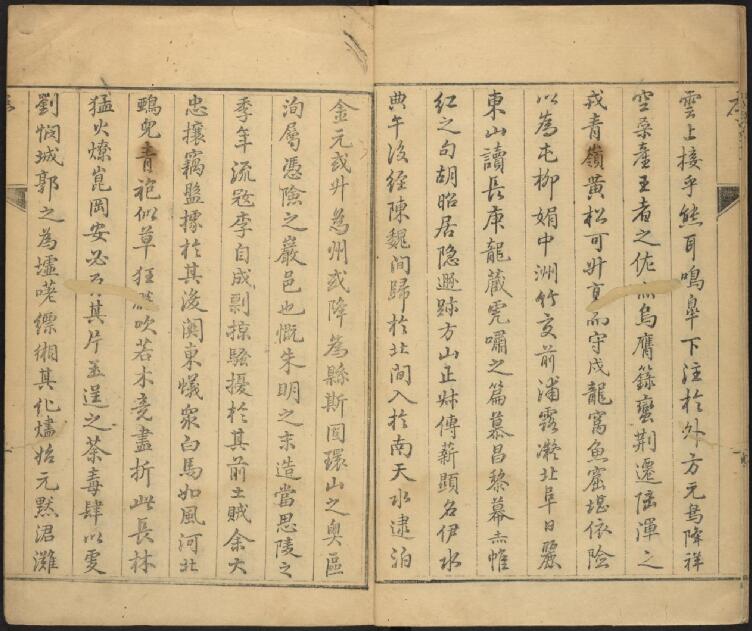 雲上接乎熊耳鳴臯下注於外方元鳥降祥
空桑產王者之佐赤烏膺籙蠻荆遷陸渾之
戎青嶺黃松可升高而守戍龍窩魚窟堪依險
以為屯柳娟中洲竹交前浦露凝北阜日麗
東山讀長庚龍藏虎嘯之篇慕昌黎幕赤帷
紅之句胡昭居隐遯跡方山正妹傳薪顕名伊水
典午後經陳魏間歸於北間入於南天水逮泊
金元或升為州或降為縣斯固環山之奥區
洵屬憑險之巖邑也慨朱明之末造當思陵之
季年流寇李自成剽掠騷擾於其前土賊余大
忠攘竊盬據於其後関東蟻眾白馬如風河北
鵶兒青袍似草狂飈吹若木竟盡折此長林
猛火燎崑岡安必其片玉逞之荼毒肆以虔
劉憫城郭之為墟嗟縹緗其化燼始元黙涒灘